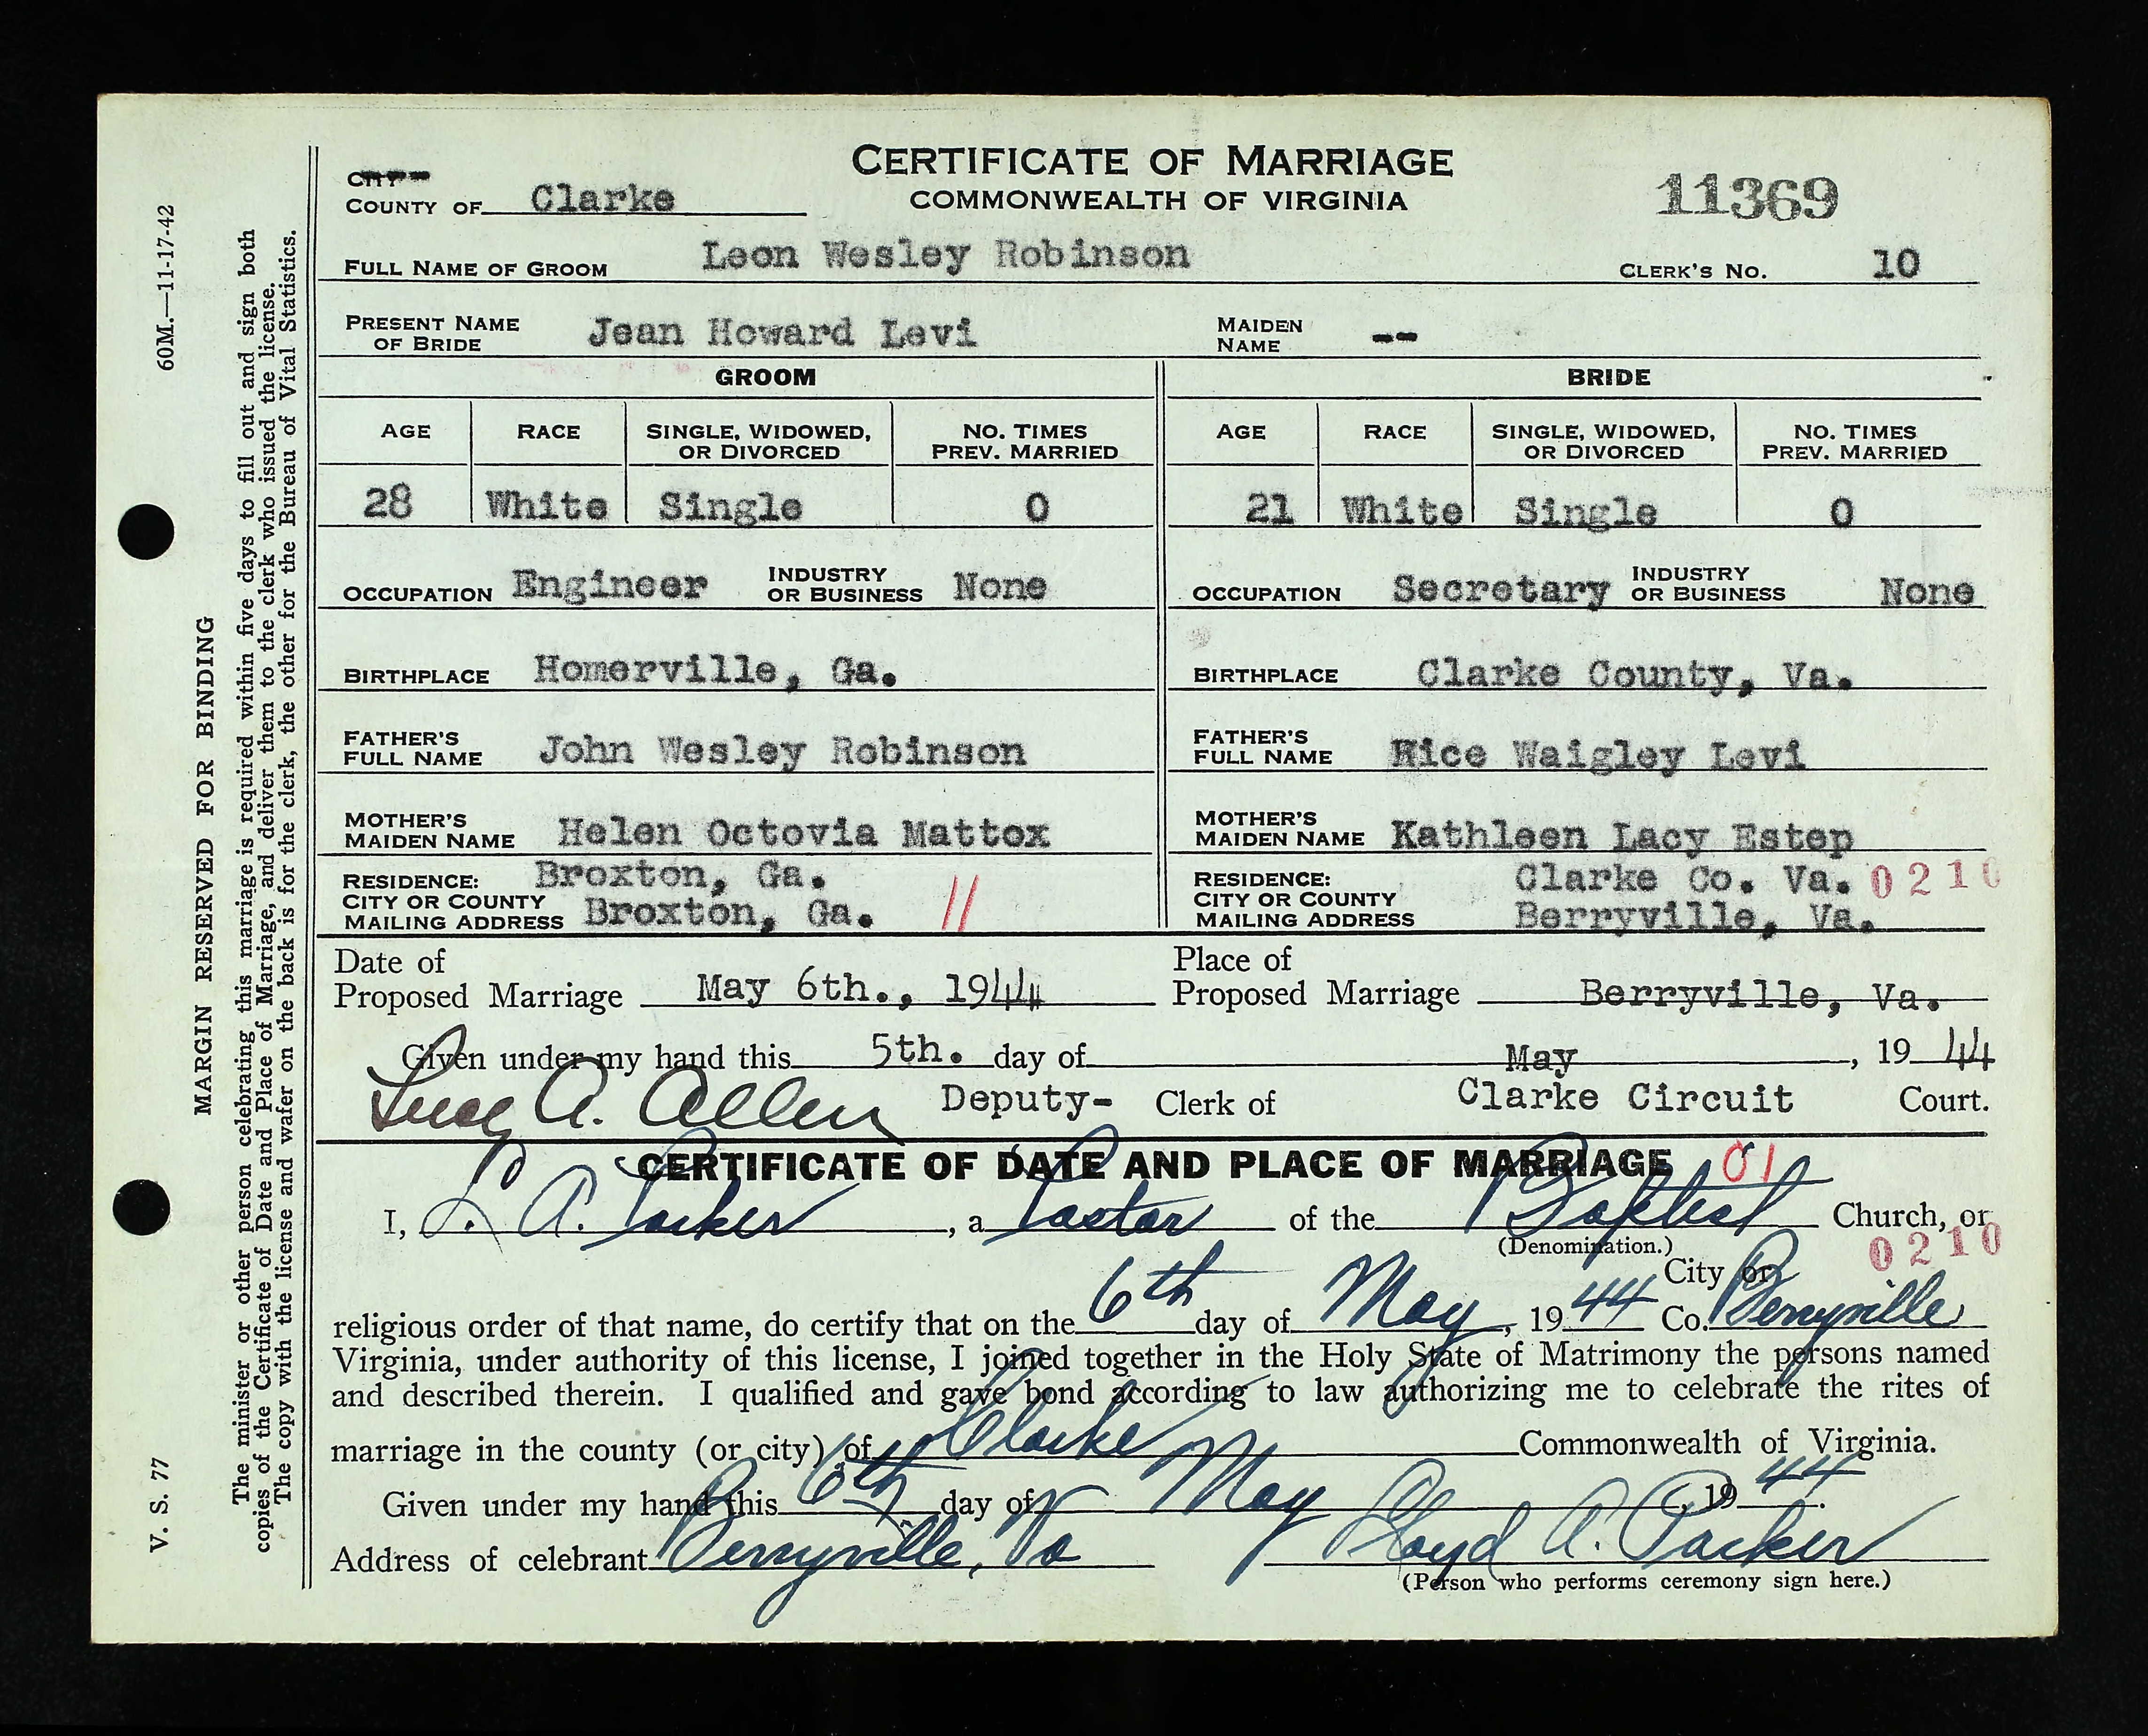 CERTIFICATE OF MARRIAGE
COMMONWEALTH OF VIRGINIA
11369
CITY
COUNTY OF Clarke
FULL NAME OF GROOM Leon Wesley Robinson CLERK'S NO. 10
PRESENT NAME OF BRIDE Jean Howard Levi MAIDEN NAME --
GROOM BRIDE
AGE RACE SINGLE, WIDOWED, OR DIVORCED NO. TIMES PREV. MARRIED AGE RACE SINGLE, WIDOWED, OR DIVORCED NO. TIMES PREV. MARRIED
28 White Single 0 21 White Single 0
OCCUPATION Engineer INDUSTRY OR BUSINESS None OCCUPATION Secretary INDUSTRY OR BUSINESS None
BIRTHPLACE Homerville, Ga. BIRTHPLACE Clarke County, Va.
FATHER'S FULL NAME John Wesley Robinson FATHER'S FULL NAME Rice Waigley Levi
MOTHER'S MAIDEN NAME Helen Octovia Mattox MOTHER'S MAIDEN NAME Kathleen Lacy Estep
RESIDENCE: CITY OR COUNTY Broxton, Ga. RESIDENCE: CITY OR COUNTY Clarke Co. Va. 0210
MAILING ADDRESS Broxton, Ga. 11 MAILING ADDRESS Berryville, Va.
Date of Proposed Marriage May 6th., 1944 Place of Proposed Marriage Berryville, Va.
Given under my hand this 5th. day of May, 1944
Lucy A. Allen Deputy- Clerk of Clarke Circuit Court.
CERTIFICATE OF DATE AND PLACE OF MARRIAGE 01
I, L. A. Parker, a Pastor of the Baptist Church, or
(Denomination.) 0210
City or
religious order of that name, do certify that on the 6th day of May, 1944 Co. Berryville
Virginia, under authority of this license, I joined together in the Holy State of Matrimony the persons named
and described therein. I qualified and gave bond according to law authorizing me to celebrate the rites of
marriage in the county (or city) of Clarke Commonwealth of Virginia.
Given under my hand this 6th day of May, 1944.
Address of celebrant Berryville, Va Lloyd A. Parker
(Person who performs ceremony sign here.)
60M.—11-17-42
MARGIN RESERVED FOR BINDING
V. S. 77
The minister or other person celebrating this marriage is required within five days to fill out and sign both
copies of the Certificate of Date and Place of Marriage, and deliver them to the clerk who issued the license.
The copy with the license and wafer on the back is for the clerk, the other for the Bureau of Vital Statistics.